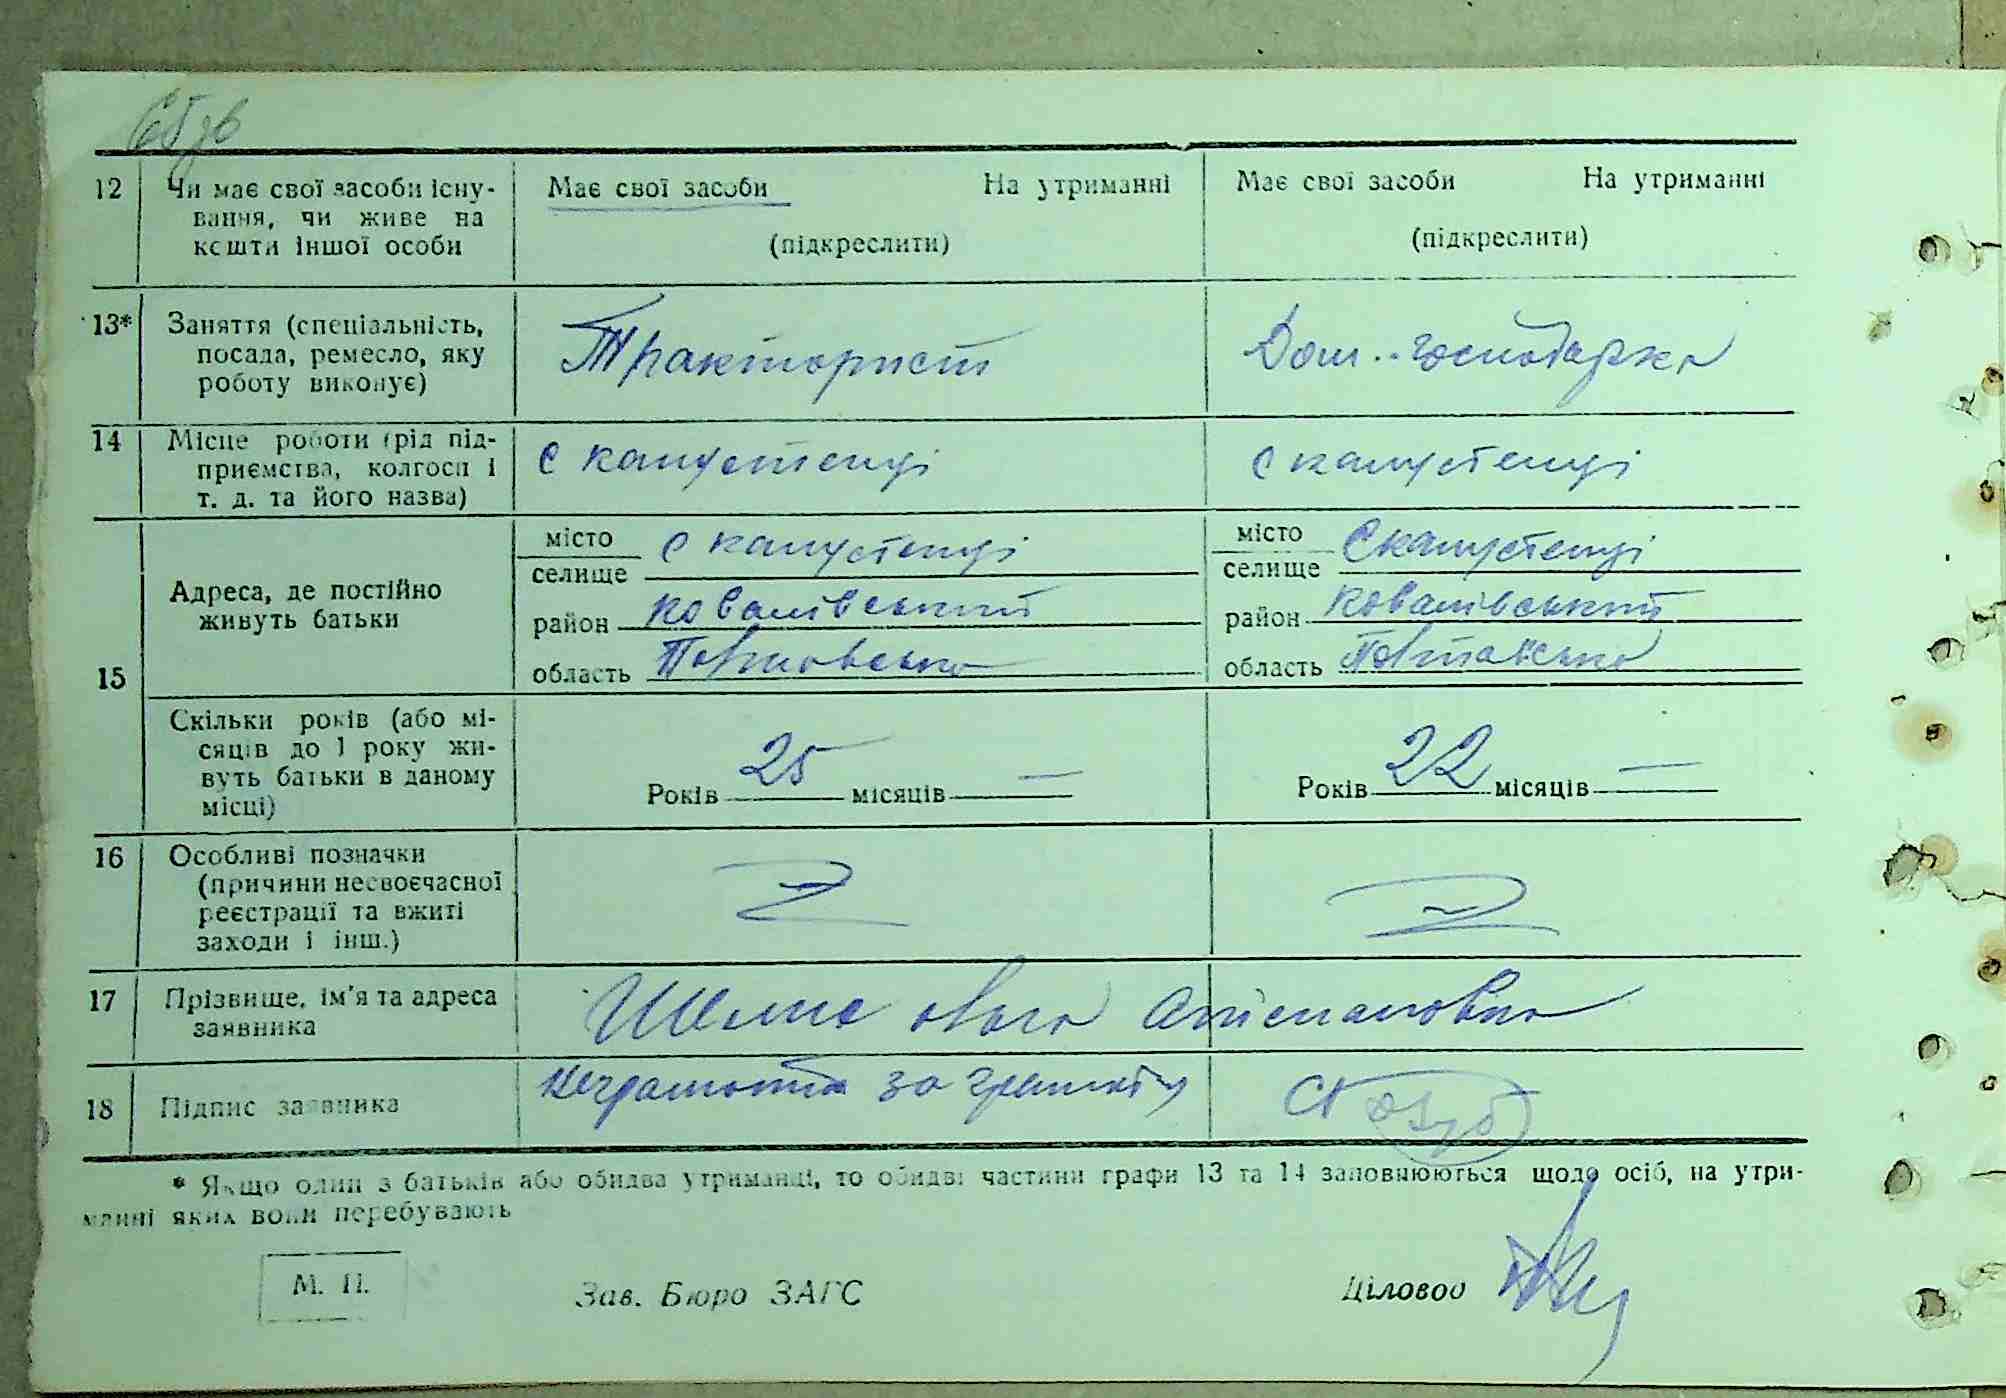 65 зв
12 Чи має свої засоби існу- Має свої засоби На утриманні Має свої засоби На утриманні
вання, чи живе на
кошти іншої особи (підкреслити) (підкреслити)
13* Заняття (спеціальність,
посада, ремесло, яку Тракторист Дом. господарка
роботу виконує)
14 Місце роботи (рід під-
приємства, колгосп і с капустенці с капустенці
т. д. та його назва)
місто с капустенці місто с капустенці
селище селище
15 Адреса, де постійно
живуть батьки район Ковалівський район Ковалівський
область Полтавська область Полтавська
Скільки років (або мі-
сяців до 1 року жи-
вуть батьки в даному Років 25 місяців — Років 22 місяців —
місці)
16 Особливі позначки
(причини несвоєчасної
реєстрації та вжиті
заходи і інш.)
17 Прізвище, ім'я та адреса Ольга Степановна
заявника
18 Підпис заявника неграмотна за
* Якщо один з батьків або обидва утриманці, то обидві частини графи 13 та 14 заповнюються щодо осіб, на утри-
манні яких вони перебувають
М. П. Зав. Бюро ЗАГС Діловод